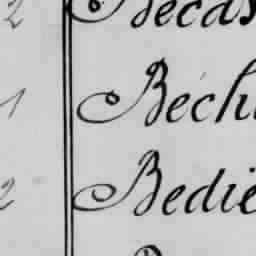 2 Bécas
1 Béchu
2 Bedie